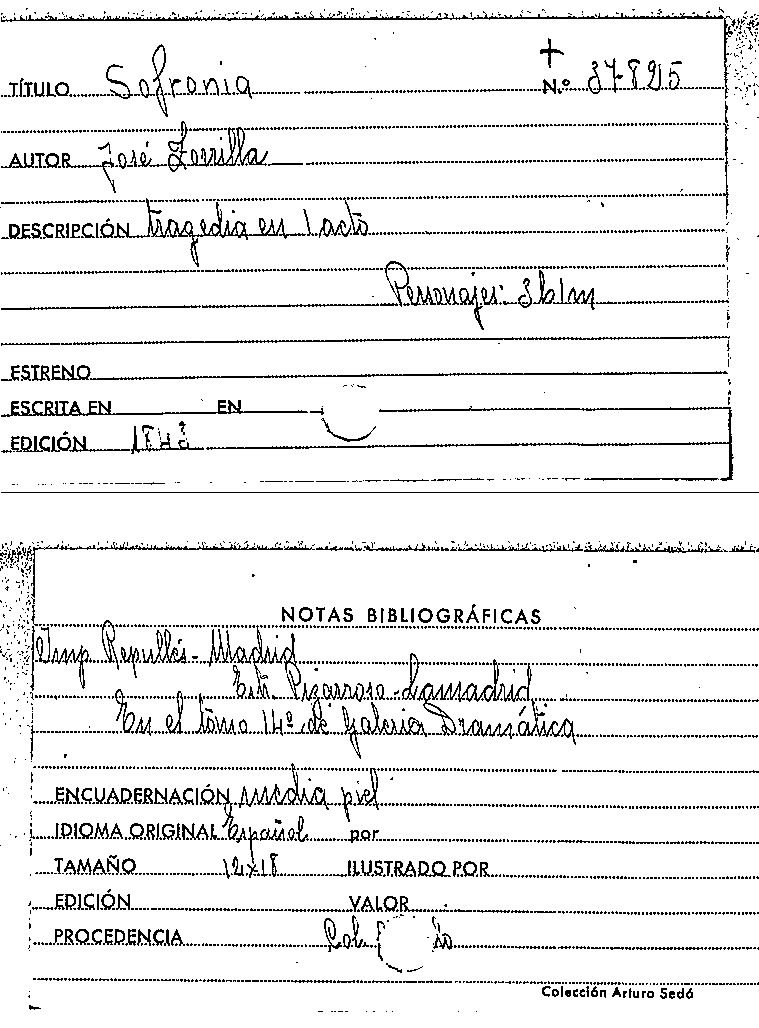 +
TÍTULO Sofronia N.º 37825
AUTOR José Zorrilla
DESCRIPCIÓN tragedia en 1 acto
Personajes: 3 h 1 m
ESTRENO
ESCRITA EN EN
EDICIÓN 1843
NOTAS BIBLIOGRÁFICAS
Imp Repullés - Madrid
Pizarroso - Lamadrid
En el tomo 14º de Galeria Dramática
ENCUADERNACIÓN media piel
IDIOMA ORIGINAL Español por
TAMAÑO 12x18 ILUSTRADO POR
EDICIÓN VALOR
PROCEDENCIA
Colección Arturo Sedó